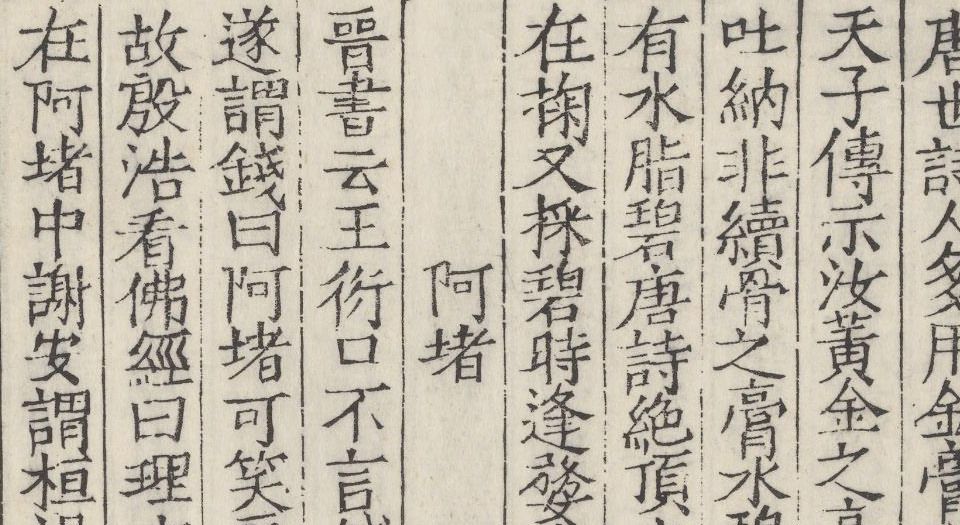 唐世詩人多用金膏
天子傳示汝黃金之
吐納非續骨之膏水碧
有水脂碧唐詩絶頂
在掬又採碧時逢發
阿堵
晉書云王衍口不言
遂謂錢曰阿堵可笑
故殷浩看佛經曰理
在阿堵中謝安謂桓